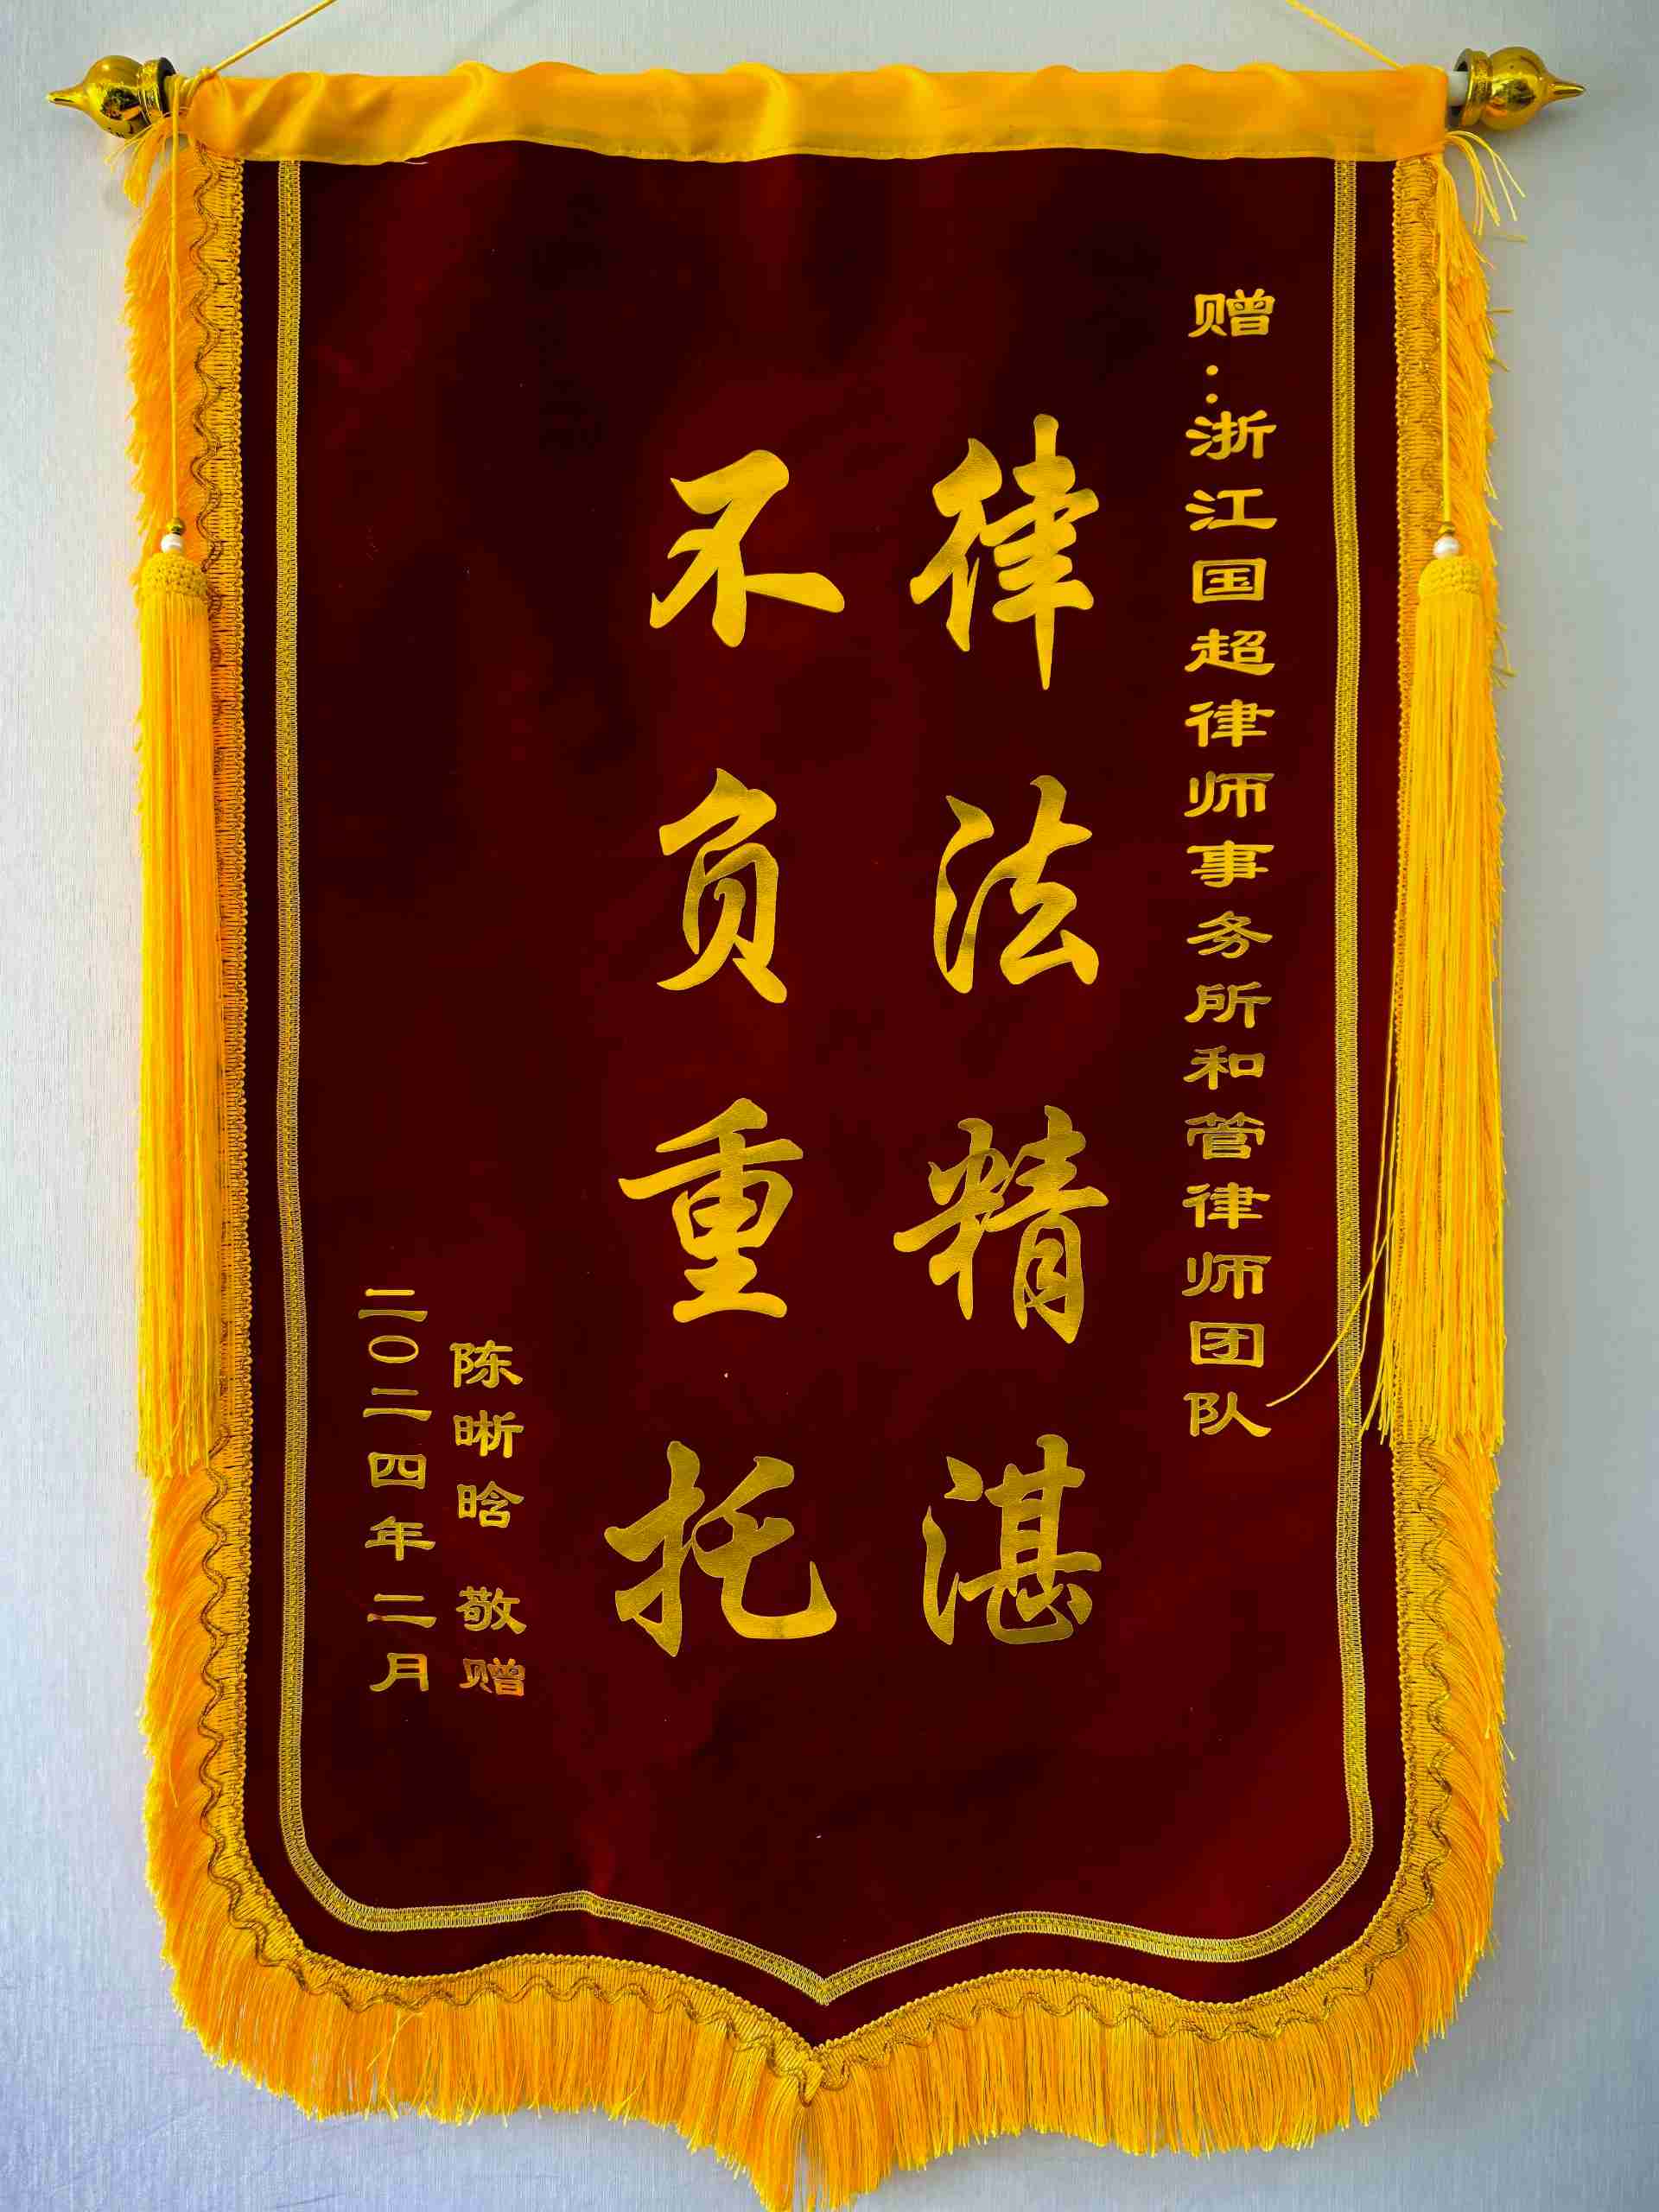 赠：浙江国超律师事务所和管律师团队
律法精湛
不负重托
陈晰晗 敬赠
二〇二四年二月